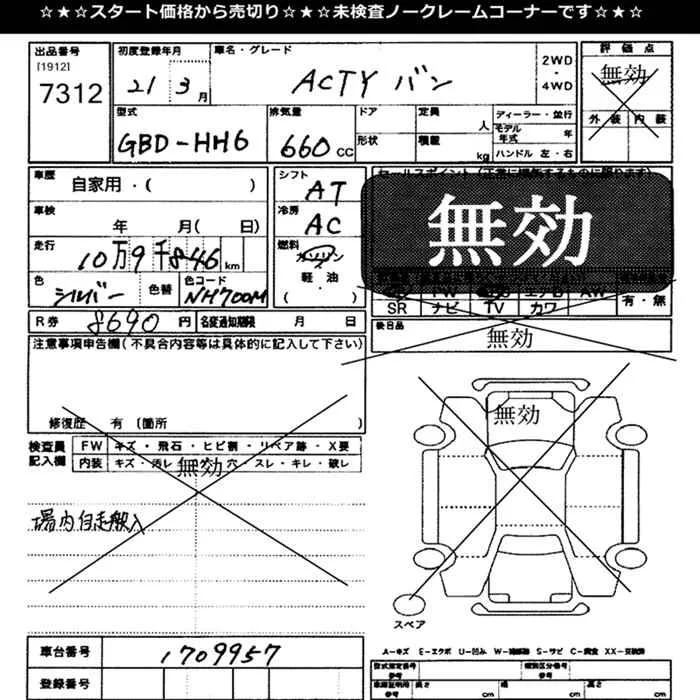 ☆★☆スタート価格から売切り☆★☆未検査ノークレームコーナーです☆★☆
出品番号 初度登録年月 車名・グレード 2WD・4WD 評価点
[1912]
7312 21 3月 ACTY バン 無効
外装 内装
型式 排気量 ドア 定員 人 ディーラー・並行
GBD-HH6 660CC 形状 積載 kg モデル年式 年
ハンドル 左・右
車歴 自家用・( ) シフト AT
車検 年 月( 日) 冷房 AC 無効
走行 10万9千846km 燃料 ガソリン
軽油
( )
色 シルバー 色替 色コード NH700M
SR ナビ TV カワ 有・無
R券 8690円 名変通知期限 月 日 後日品
無効
注意事項申告欄(不具合内容等は具体的に記入して下さい)
無効
修復歴 有 〔箇所 )
検査員記入欄 FW キズ・飛石・ヒビ割・リペア跡・X要
内装 キズ・汚レ 無効 穴・スレ・キレ・破レ
場内自走搬入
スペア
A-キズ E-エクボ U-凹み W-補修跡 S-サビ C-腐食 XX-交換済
車台番号 1709957
型式指定番号 類別区分番号
参考
登録番号
車庫証明用 長さ cm 幅 cm 高さ cm
参考